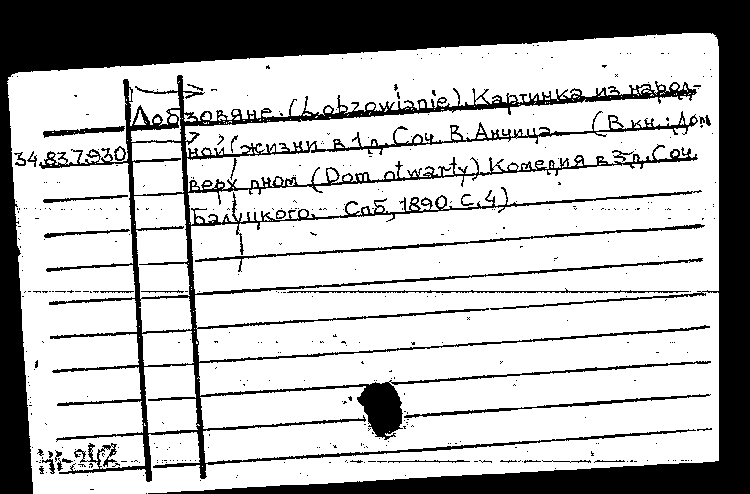 Лобзовяне. (Lobzowianie). Картинка из народ-
34.83.7.930 ной жизни в 1 д. Соч. В. Анчица. (В кн.: Дом
верх дном (Dom otwarty). Комедия в 3 д. Соч.
Балуцкого. Спб, 1890. С. 4).